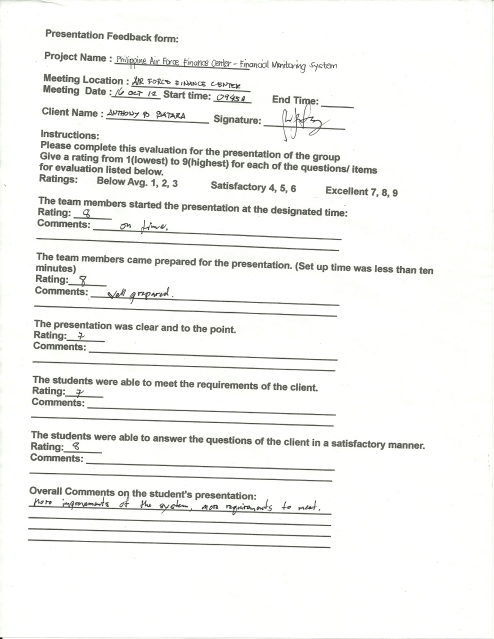 Presentation Feedback form:
Project Name : Philippine Air Force Finance Center - Financial Monitoring System
Meeting Location : AIR FORCE FINANCE CENTER
Meeting Date : 16 OCT 12 Start time: 0945H End Time:
Client Name : ANTHONY D BATARA Signature:
Instructions:
Please complete this evaluation for the presentation of the group
Give a rating from 1(lowest) to 9(highest) for each of the questions/ items
for evaluation listed below.
Ratings: Below Avg. 1, 2, 3 Satisfactory 4, 5, 6 Excellent 7, 8, 9
The team members started the presentation at the designated time:
Rating: 8
Comments: on time.
The team members came prepared for the presentation. (Set up time was less than ten
minutes)
Rating: 8
Comments: well prepared.
The presentation was clear and to the point.
Rating: 7
Comments:
The students were able to meet the requirements of the client.
Rating: 7
Comments:
The students were able to answer the questions of the client in a satisfactory manner.
Rating: 8
Comments:
Overall Comments on the student's presentation:
More improvements of the system, more requirements to meet.